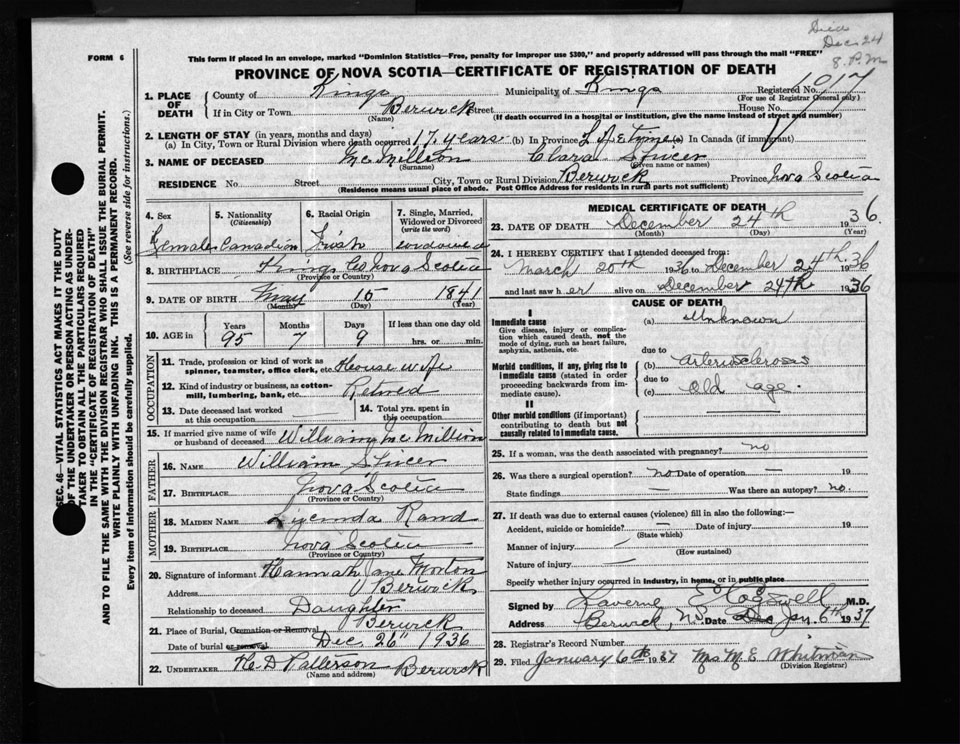 Died
Dec 24
8. P.M
FORM 6
This form if placed in an envelope, marked "Dominion Statistics—Free, penalty for improper use $300," and properly addressed will pass through the mail "FREE"
PROVINCE OF NOVA SCOTIA—CERTIFICATE OF REGISTRATION OF DEATH
SEC. 46—VITAL STATISTICS ACT MAKES IT THE DUTY
OF THE UNDERTAKER OR PERSON ACTING AS UNDER-
TAKER TO OBTAIN ALL THE PARTICULARS REQUIRED
IN THE "CERTIFICATE OF REGISTRATION OF DEATH"
AND TO FILE THE SAME WITH THE DIVISION REGISTRAR WHO SHALL ISSUE THE BURIAL PERMIT.
WRITE PLAINLY WITH UNFADING INK. THIS IS A PERMANENT RECORD.
Every item of information should be carefully supplied. (See reverse side for instructions.)
1. PLACE OF DEATH
County of Kings Municipality of Kings Registered No. 1017
(For use of Registrar General only)
If in City or Town Berwick Street House No.
(Name) (If death occurred in a hospital or institution, give the name instead of street and number)
2. LENGTH OF STAY (in years, months and days)
(a) In City, Town or Rural Division where death occurred 17 years (b) In Province Lifetime (c) In Canada (if immigrant)
3. NAME OF DECEASED McMillion Clara Spicer
(Surname) (Given name or names)
RESIDENCE No. Street City, Town or Rural Division Berwick Province Nova Scotia
(Residence means usual place of abode. Post Office Address for residents in rural parts not sufficient)
4. Sex
Female
5. Nationality
(Citizenship)
Canadian
6. Racial Origin
Irish
7. Single, Married,
Widowed or Divorced
(write the word)
widowed
8. BIRTHPLACE Kings Co Nova Scotia
(Province or Country)
9. DATE OF BIRTH May 15 1841
(Month) (Day) (Year)
10. AGE in Years Months Days If less than one day old
95 7 9 hrs. or min.
OCCUPATION
11. Trade, profession or kind of work as
spinner, teamster, office clerk, etc. House wife
12. Kind of industry or business, as cotton-
mill, lumbering, bank, etc. Retired
13. Date deceased last worked
at this occupation
14. Total yrs. spent in
this occupation
15. If married give name of wife
or husband of deceased William McMillion
FATHER
16. NAME William Spicer
17. BIRTHPLACE Nova Scotia
(Province or Country)
MOTHER
18. MAIDEN NAME Lucinda Rand
19. BIRTHPLACE Nova Scotia
(Province or Country)
20. Signature of informant Hannah Jane Morton
Address Berwick
Relationship to deceased Daughter
21. Place of Burial, Cremation or Removal Berwick
Date of burial or removal Dec 26" 1936
22. UNDERTAKER H. D Patterson Berwick
(Name and address)
MEDICAL CERTIFICATE OF DEATH
23. DATE OF DEATH December 24th 1936.
(Month) (Day) (Year)
24. I HEREBY CERTIFY that I attended deceased from:
March 20th 1936 to December 24th 1936
and last saw her alive on December 24th 1936
CAUSE OF DEATH
I
Immediate cause
Give disease, injury or complica-
tion which caused death, not the
mode of dying, such as heart failure,
asphyxia, asthenia, etc.
(a) Unknown
due to
Morbid conditions, if any, giving rise to
immediate cause (stated in order
proceeding backwards from im-
mediate cause).
(b) arteriosclerosis
due to
(c) Old age.
II
Other morbid conditions (if important)
contributing to death but not
causally related to immediate cause.
25. If a woman, was the death associated with pregnancy? no
26. Was there a surgical operation? no Date of operation — 19
State findings — Was there an autopsy? no.
27. If death was due to external causes (violence) fill in also the following:—
Accident, suicide or homicide? — Date of injury 19
(State which)
Manner of injury —
(How sustained)
Nature of injury —
Specify whether injury occurred in industry, in home, or in public place
Signed by Laverne E Cogswell M.D.
Address Berwick, N.S. Date Dec Jan. 6th 1937
28. Registrar's Record Number
29. Filed January 6th 1937 Mrs M E Whitman
(Division Registrar)